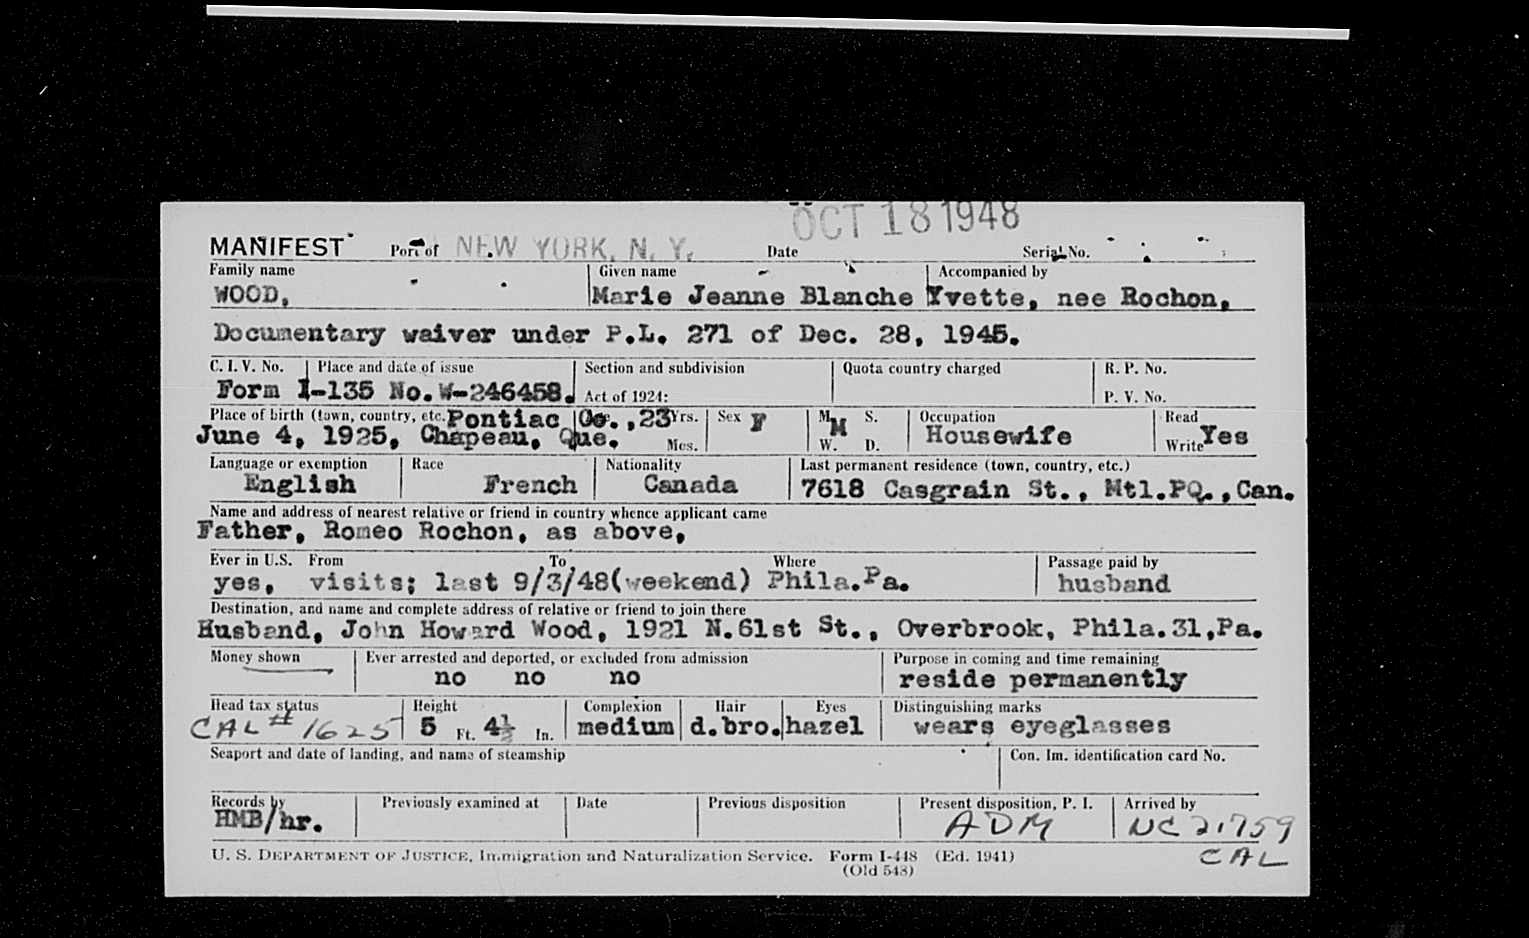 OCT 18 1948
MANIFEST Port of NEW YORK, N. Y. Date Serial No.
Family name Given name Accompanied by
WOOD, Marie Jeanne Blanche Yvette, nee Rochon,
Documentary waiver under P.L. 271 of Dec. 28, 1945.
C. I. V. No. Place and date of issue Section and subdivision Quota country charged R. P. No.
Form I-135 No.W-246458. Act of 1924: P. V. No.
Place of birth (town, country, etc. Pontiac Co., 23 Yrs. Sex F M. M S. Occupation Read
June 4, 1925, Chapeau, Que. Mos. W. D. Housewife Write Yes
Language or exemption Race Nationality Last permanent residence (town, country, etc.)
English French Canada 7618 Casgrain St., Mtl.PQ.,Can.
Name and address of nearest relative or friend in country whence applicant came
Father, Romeo Rochon, as above,
Ever in U.S. From To Where Passage paid by
yes, visits; last 9/3/48(weekend) Phila.Pa. husband
Destination, and name and complete address of relative or friend to join there
Husband, John Howard Wood, 1921 N.61st St., Overbrook, Phila.31,Pa.
Money shown Ever arrested and deported, or excluded from admission Purpose in coming and time remaining
no no no reside permanently
Head tax status Height Complexion Hair Eyes Distinguishing marks
CAL # 1625 5 Ft. 4½ In. medium d.bro. hazel wears eyeglasses
Seaport and date of landing, and name of steamship Con. Im. identification card No.
Records by Previously examined at Date Previous disposition Present disposition, P. I. Arrived by
HMB/hr. ADM NC 21759
CAL
U. S. DEPARTMENT OF JUSTICE, Immigration and Naturalization Service. Form I-448 (Ed. 1941)
(Old 548)